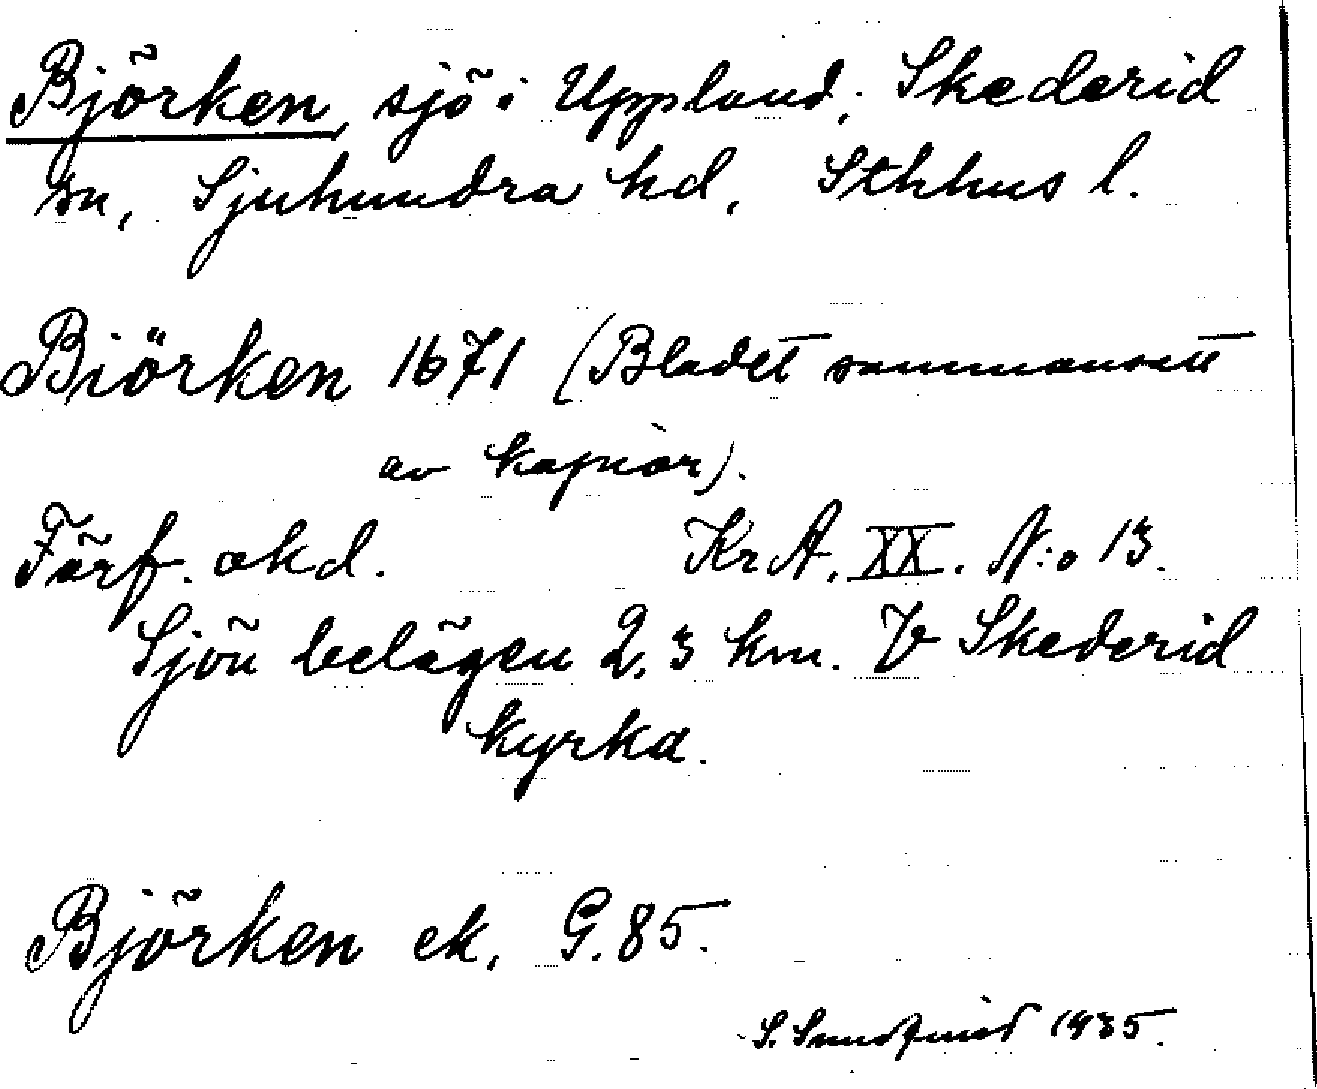 Björken, sjö i Uppland, Skederid
sn, Sjuhundra hd, Sthlms l.
Biörken 1671 (Bladet sammansatt
av kopior).
Förf. okd. Kr A. XX. N:o 13.
Sjön belägen 2,3 km. V Skederid
kyrka.
Björken ek. G. 85.
S. Sundquist 1935.